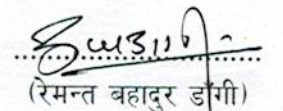 (रेमन्त बहादुर डाँगी)